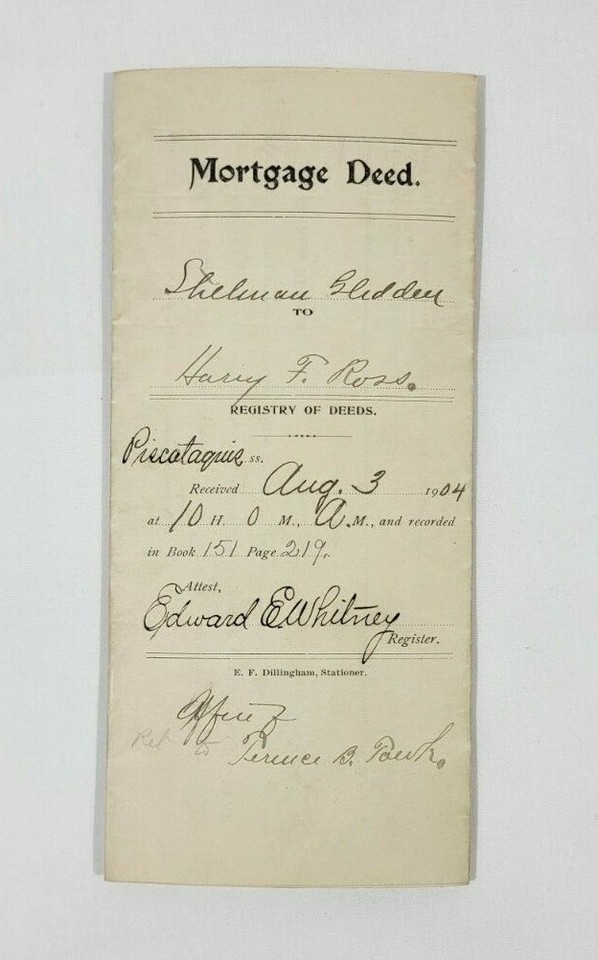 Mortgage Deed.
Stelman Glidden
TO
Harry F. Ross.
REGISTRY OF DEEDS.
Piscataquis ss.
Received Aug. 3 1904
at 10 H. 0 M., A.M., and recorded
in Book 151 Page 219.
Attest,
Edward E Whitney
Register.
E. F. Dillingham, Stationer.
Ret to
B.